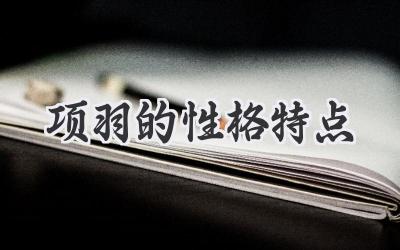 项羽的性格特点